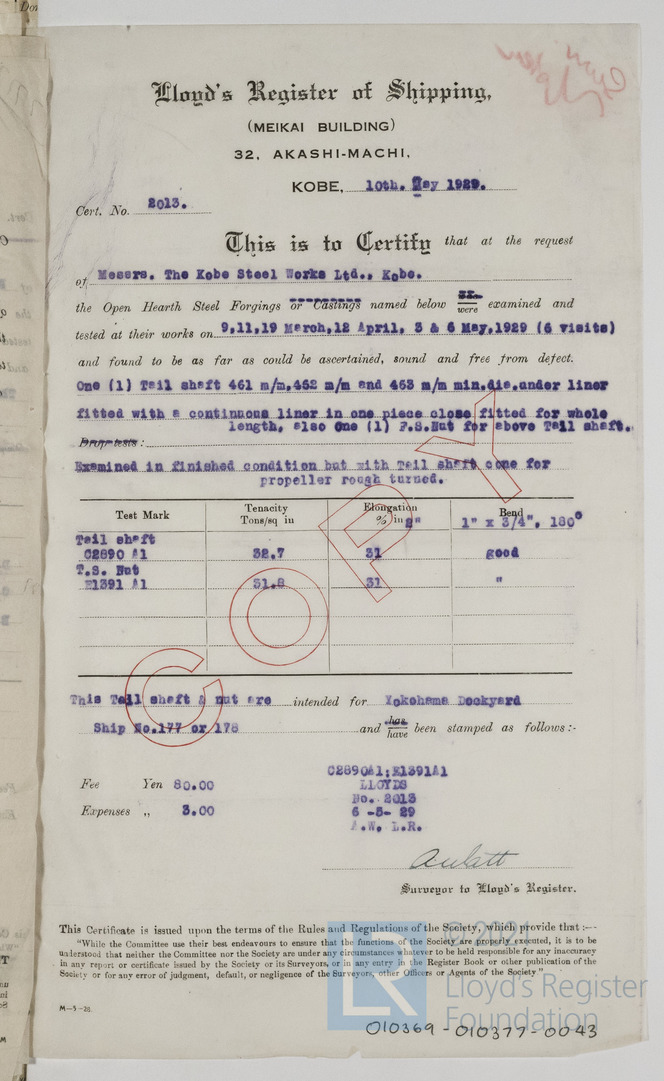 Lloyd's Register of Shipping,
(MEIKAI BUILDING)
32, AKASHI-MACHI,
KOBE, 10th. May 1929.
Cert. No. 2013.
This is to Certify that at the request
of Messrs. The Kobe Steel Works Ltd., Kobe.
the Open Hearth Steel Forgings or Castings named below were examined and
tested at their works on 9,11,19 March,12 April, 3 & 6 May,1929 (6 visits)
and found to be as far as could be ascertained, sound and free from defect.
One (1) Tail shaft 461 m/m,462 m/m and 463 m/m min.dia.under liner
fitted with a continuous liner in one piece close fitted for whole
length, also One (1) F.S.Nut for above Tail shaft.
Drop tests:
Examined in finished condition but with Tail shaft cone for
propeller rough turned.
Test Mark Tenacity Tons/sq in Elongation %) in 8" Bend 1" x 3/4", 180°
Tail shaft
C2890 A1 32.7 31 good
T.S. Nut
E1391 A1 31.8 31 "
This Tail shaft & nut are intended for Yokohama Dockyard
Ship No.177 or 178 and has/have been stamped as follows:-
C2890A1;E1391A1
Fee Yen 80.00 LLOYDS
No. 2013
Expenses „ 3.00 6 -5- 29
A.W. L.R.
Surveyor to Lloyd's Register.
This Certificate is issued upon the terms of the Rules and Regulations of the Society, which provide that :—
"While the Committee use their best endeavours to ensure that the functions of the Society are properly executed, it is to be
understood that neither the Committee nor the Society are under any circumstances whatever to be held responsible for any inaccuracy
in any report or certificate issued by the Society or its Surveyors, or in any entry in the Register Book or other publication of the
Society or for any error of judgment, default, or negligence of the Surveyors, other Officers or Agents of the Society"
M—5—28.
COPY
LR
© 2021
Lloyd's Register
Foundation
010369-010377-0043